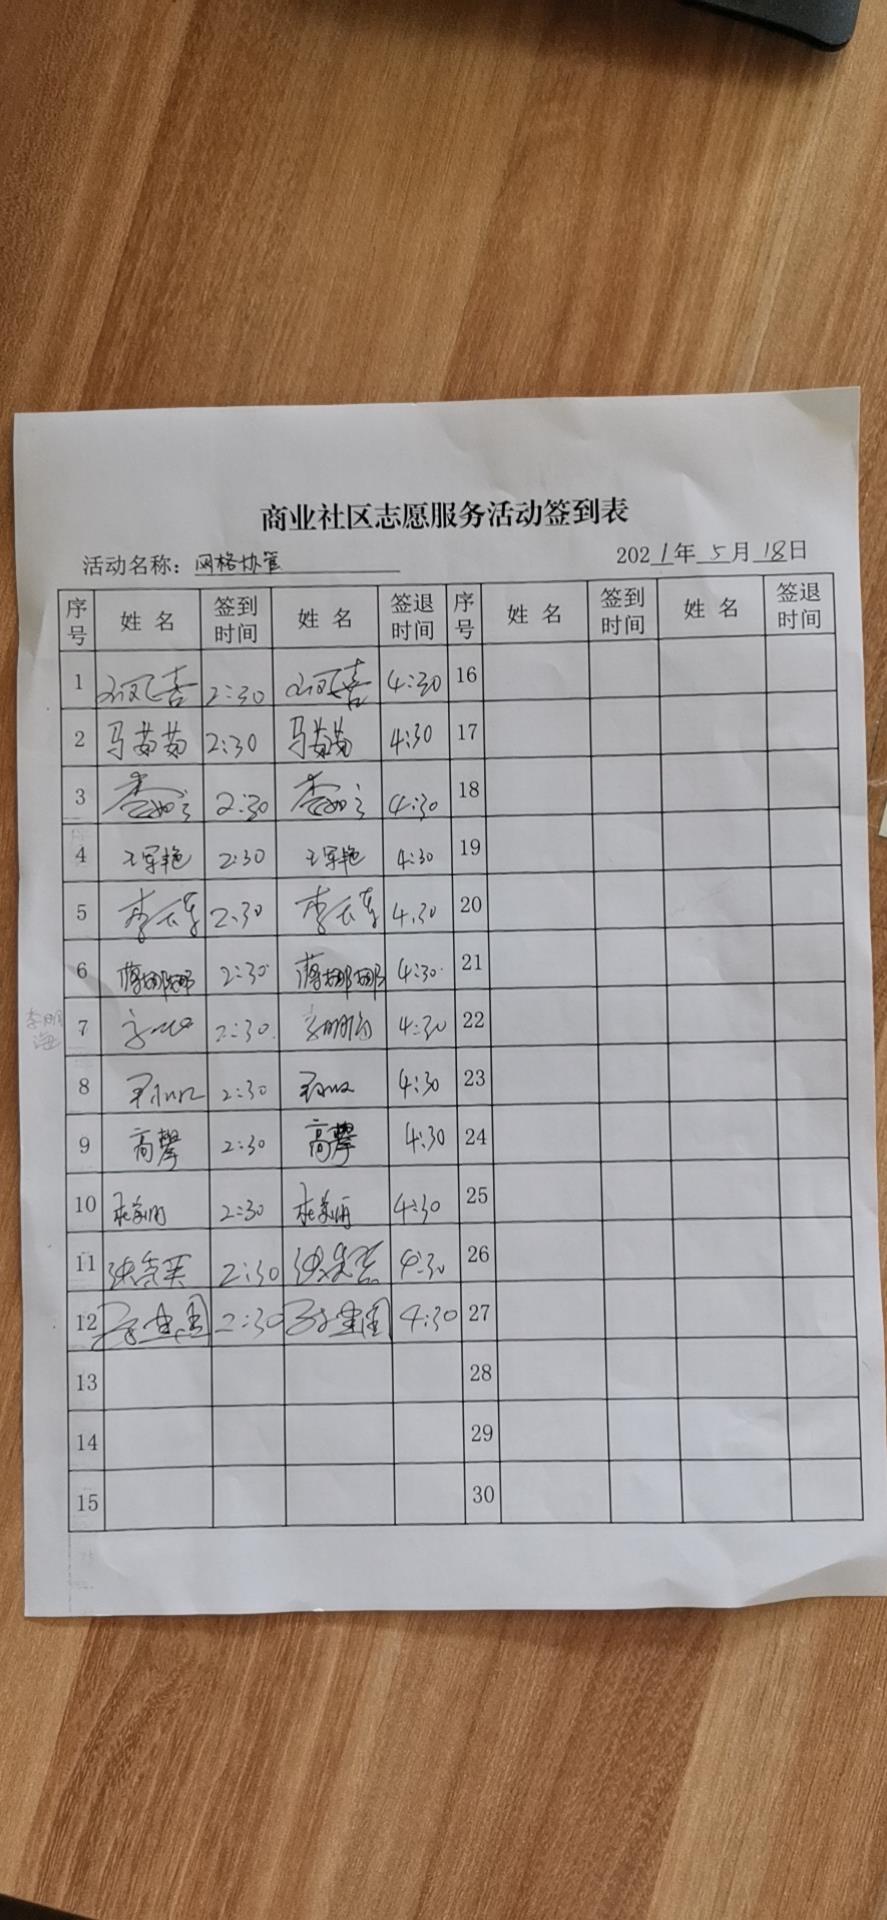 商业社区志愿服务活动签到表
活动名称：网格协管 2021年5月18日
序号 姓名 签到时间 姓名 签退时间 序号 姓名 签到时间 姓名 签退时间
1 2:30 4:30 16
2 马茹茹 2:30 马茹茹 4:30 17
3 2:30 4:30 18
4 王军艳 2:30 王军艳 4:30 19
5 2:30 4:30 20
6 蒋娜娜 2:30 蒋娜娜 4:30 21
李明海 7 2:30 4:30 22
8 2:30 4:30 23
9 高攀 2:30 高攀 4:30 24
10 2:30 4:30 25
11 2:30 4:30 26
12 2:30 4:30 27
13 28
14 29
15 30